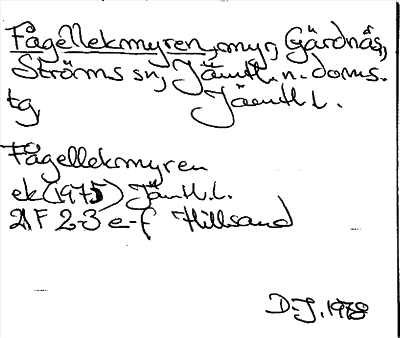 Fågellekmyren, myr, Gärdnäs,
Ströms sn, Jämtl. n. doms.
tg, Jämtl l.
Fågellekmyren
ek (1975) Jämtl.l.
21F 2-3 e-f Hillsand
D-J. 1978